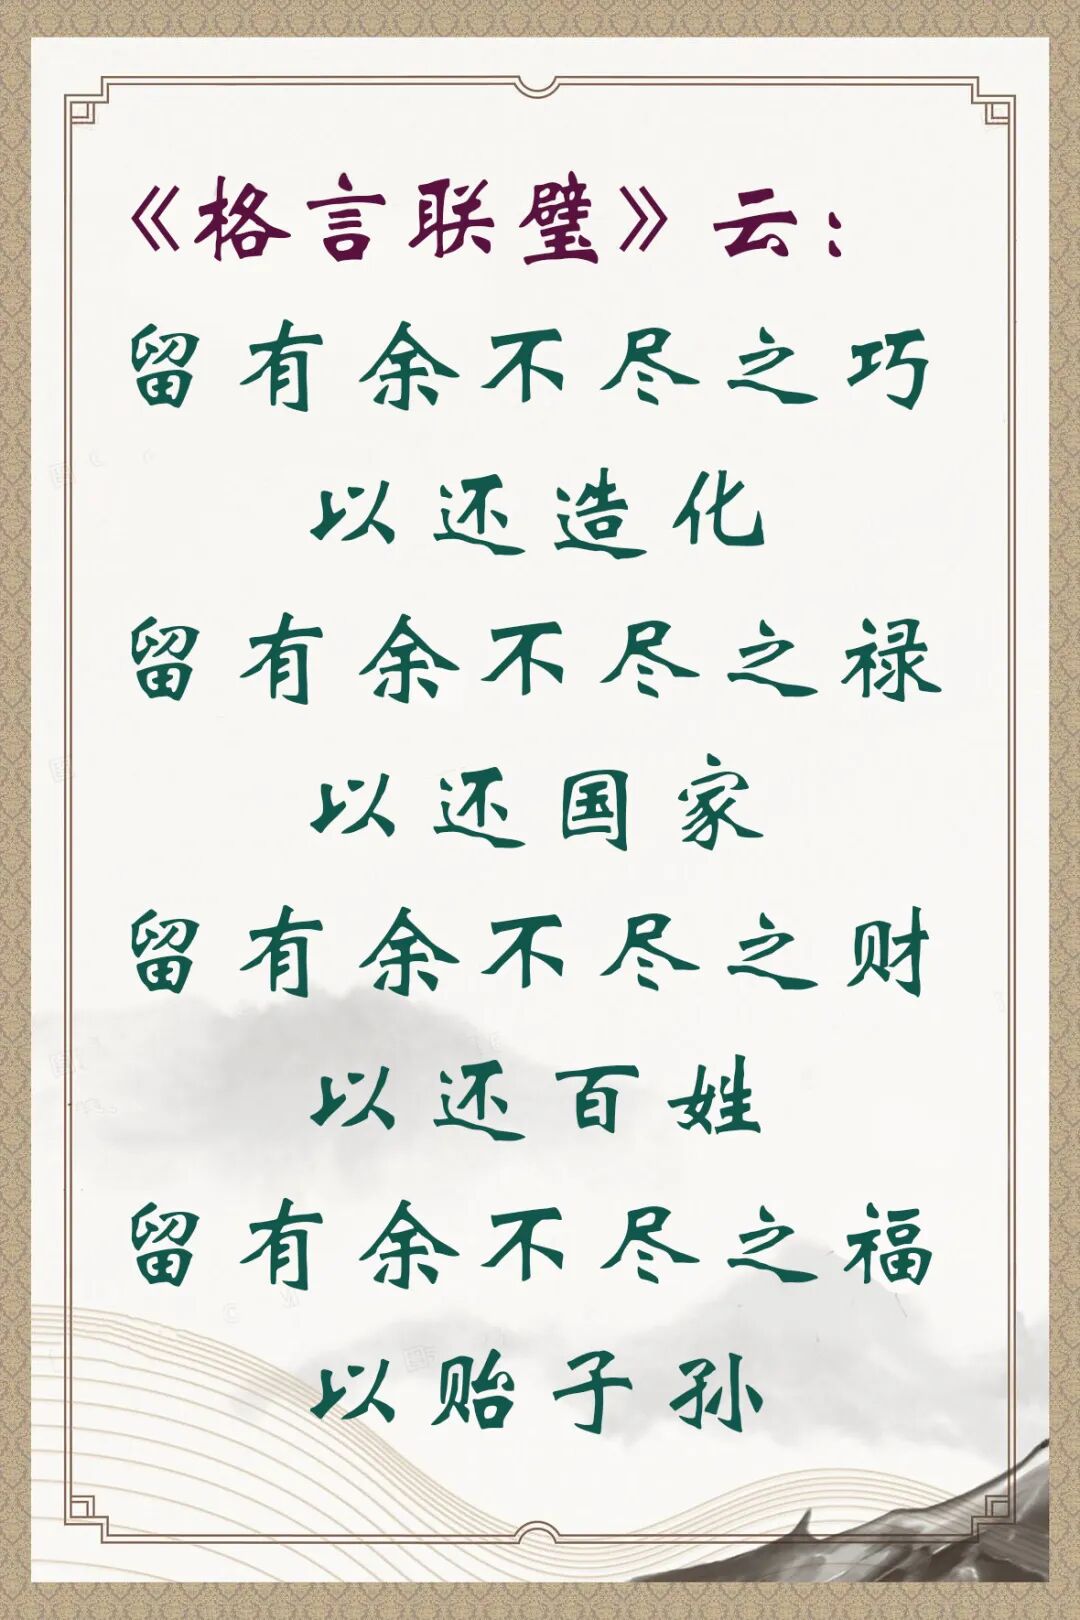 《格言联璧》云：
留有余不尽之巧
以还造化
留有余不尽之禄
以还国家
留有余不尽之财
以还百姓
留有余不尽之福
以贻子孙